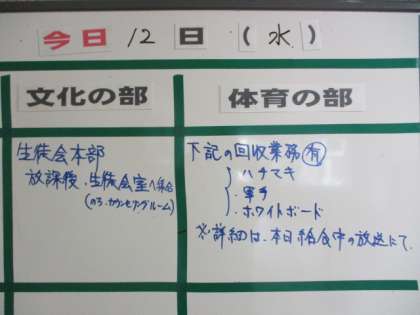 今日 12 日 (水)
文化の部
体育の部
生徒会本部
放課後、生徒会室へ集合
(のち、カウンセリングルーム)
下記の回収業務㊒
・ハチマキ
・軍手
・ホワイトボード
※詳細は、本日給食中の放送にて。